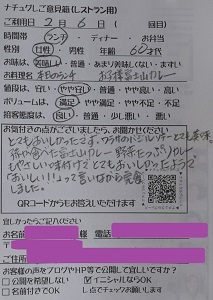 ナチュグしご意見箱(レストラン用)
ご利用日 2月6日(回目)
時間帯 ランチ・ディナー・お弁当
性別 女性・男性 年齢 60才代
お味は 美味しい・普通・あまり美味しくない・まずい
お料理名 本日のランチ お子様富士山カレー
値段は、安い・やや安い・普通・やや高い・高い
ボリュームは、満足・やや満足・普通・やや不足・不足
接客態度は、良い・普通・少し悪い・悪い
お気付きの点がございましたら、お聞かせください
とてもおいしかったです。
孫が食べた富士山カレー 野菜たっぷりカレー
もやさしい味付けで とてもおいしかったようで
おいしい!!って言いながら完食し
ました。
QRコードからもお答えいただけます
宜しかったらご記入ください
お名前 様 電話
〒
ご住所
お客様の声をブログやHP等で公開して宜しいですか?
公開を希望しない イニシャルならOK
名前付きでOK ↓点でチェックお願いします